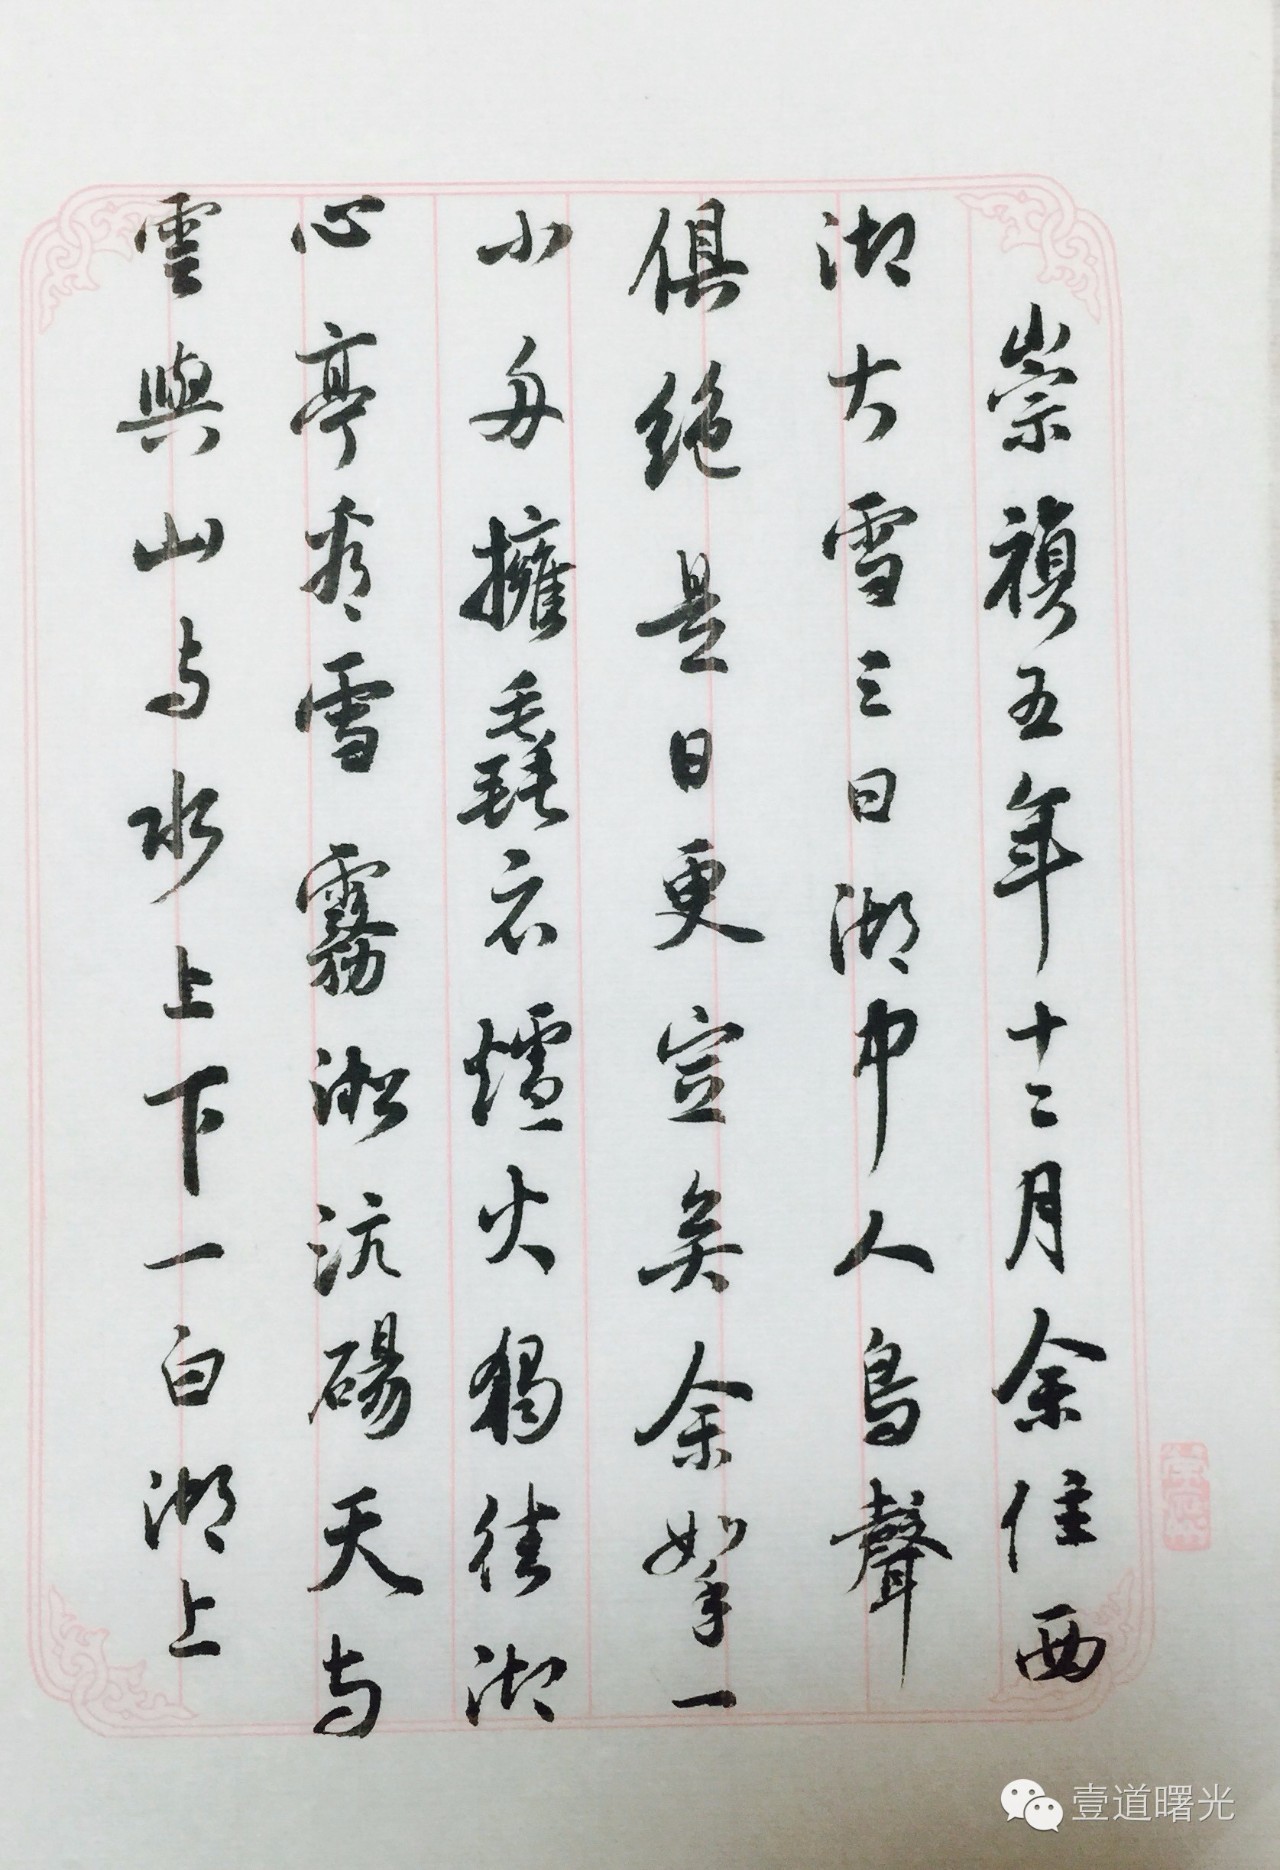 崇禎五年十二月余住西
湖大雪三日湖中人鳥聲
俱絕是日更定矣余拏一
小舟擁毳衣爐火獨往湖
心亭看雪霧淞沆碭天与
雲與山与水上下一白湖上
壹道曙光